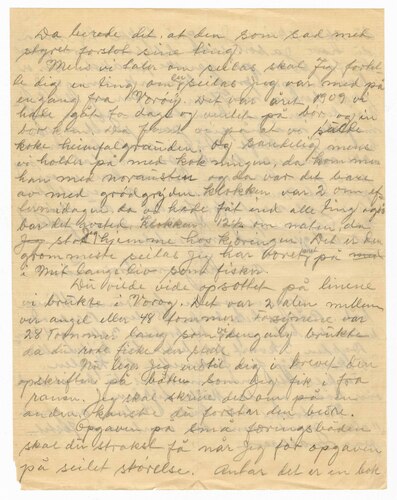 Da herede det, at den som sad med
styret forstod sine ting.
Mens vi taler om seilas skal Jeg fortel
le dig en ting, om en seilas Jeg var med på
engang fra Værøy. Det var året 1909 vi
hade gåt to dage og ventet på bør, og in
bør kom der fandt vi på at vi skulde
koke heimfalgrauten. Og sandelig mens
vi holder på med kokningen, da kommer
han med norvansten og da var det bare
av med grødgryden. Klokken var 2 om ef
termidagen da vi hade fåt ind alle ting og så
bar det avsted. Klokken 12½ om naten, da
stod vi hjemme hos kjæringen. Det er den
gromeste seilas jeg har været på
i mit lange liv som fisker.
Du vilde vide opsettet på linene
vi brukte i Værøy. Det var 2 alen mellem
vær angel eller 48 tommer. Forsynene var
28 Tommer lang som vi dengang brukte
da du rode fisker der nede.
Nu leger Jeg ind til dig i brevet den
opskriften på båten som Jeg fik i fra
ranen. Jeg skal skrive det om på en
anden, kanske du forstår den bedre.
Opgaven på små føringsbåden
skal du straks få når Jeg får opgaven
på seilet størelse. Anbar det er en bok